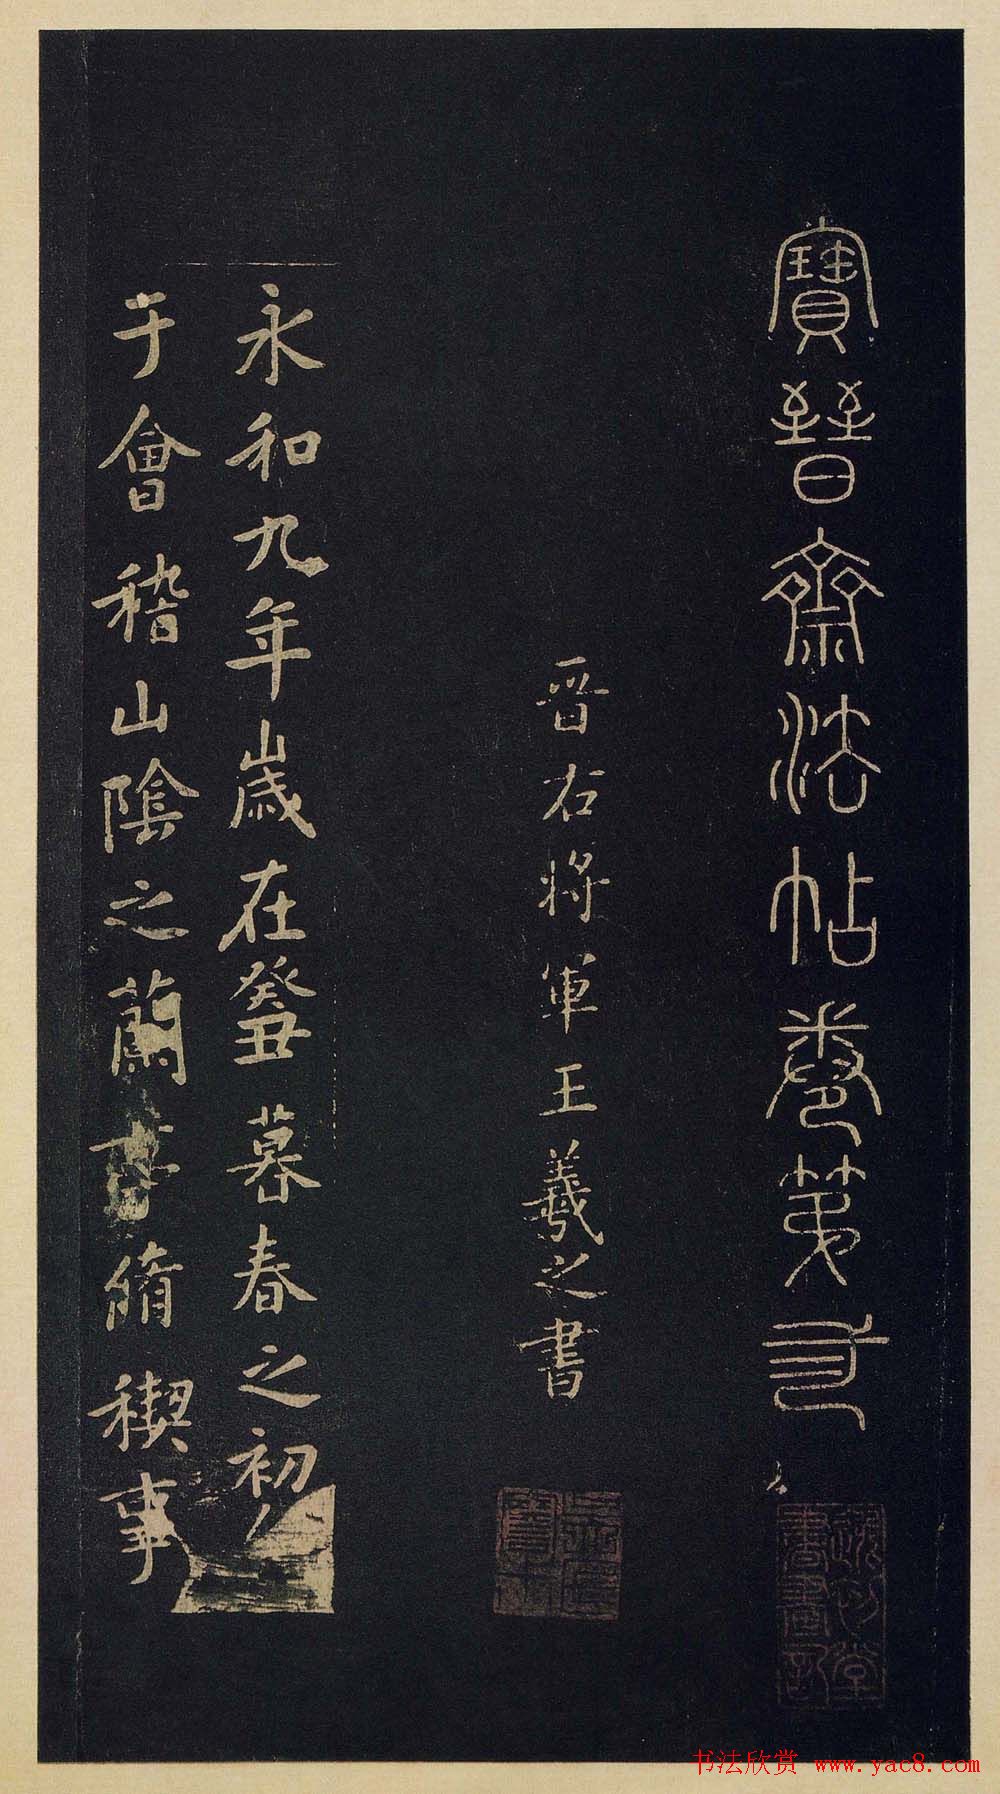 寶晉齋法帖卷第
晋右將軍王羲之書
永和九年歲在癸丑暮春之初
于會稽山陰之蘭亭脩稧事
书法欣赏 www.yac8.com